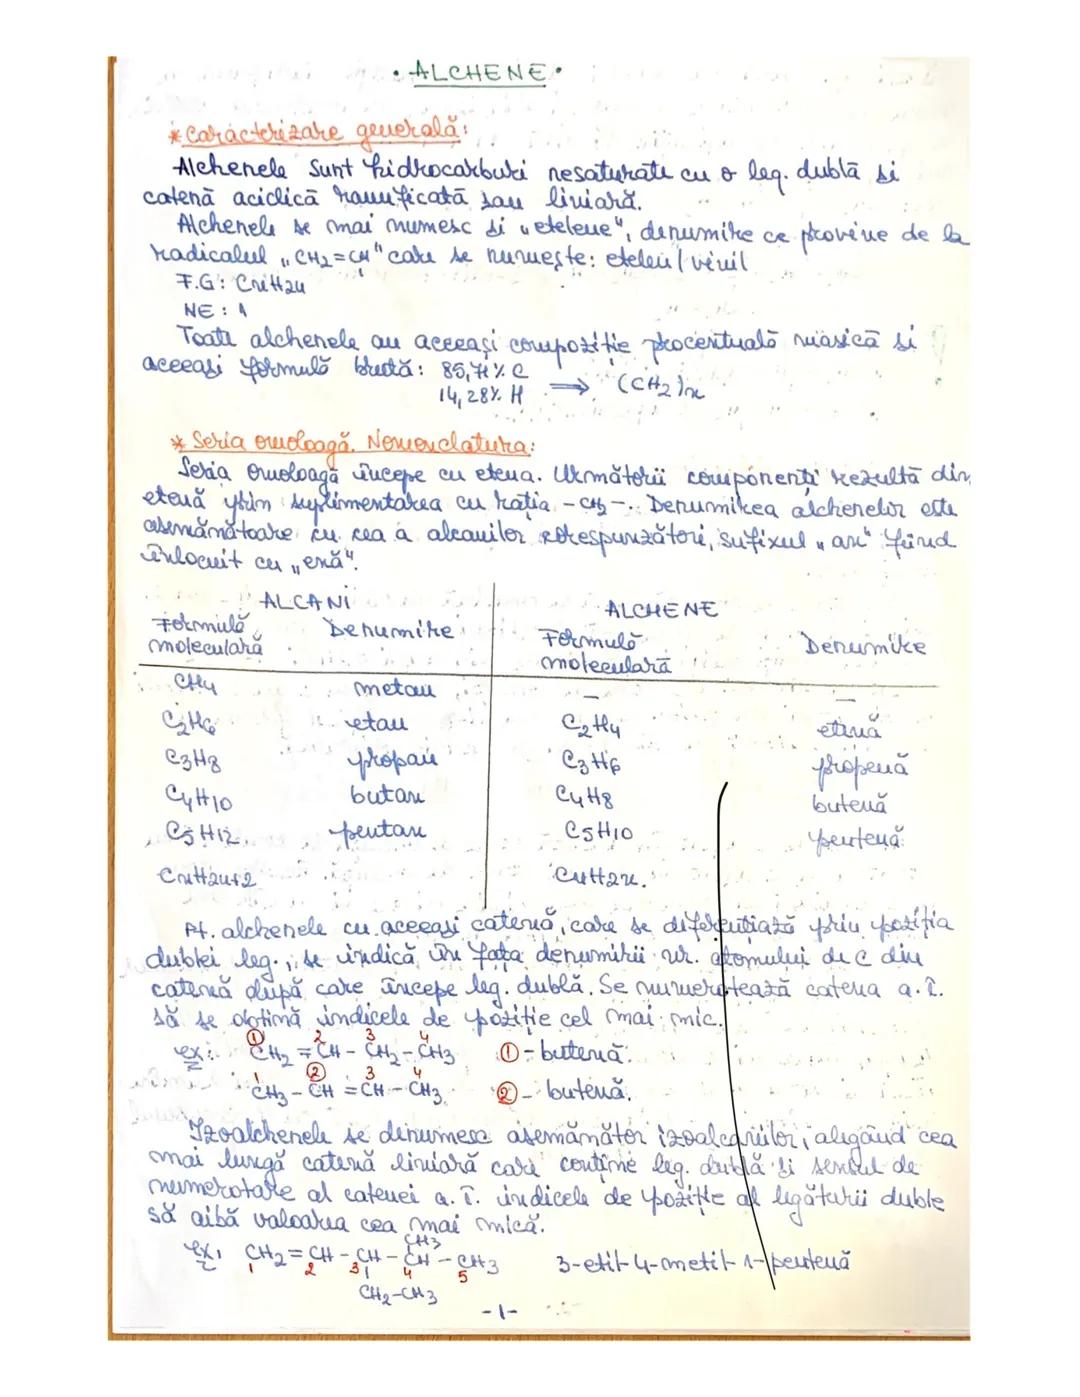 • ALCHENE •
* Caracterizare generală:
Alchenele sunt hidrocarburi nesaturate cu o leg. dublă si
catenă aciclică ramificată sau liniară.
Alchenele se mai numesc si „etelene", denumire ce provine de la
radicalul „CH2=CH" care se numește: etelen / vinil
F.G: CnH2n
NE: 1
Toate alchenele au aceeași compoziție procentuală masică si
aceeasi formulă brută: 85,71% C
14,28% H ⟹ (CH2)n
* Seria omoloagă. Nomenclatura:
Seria omoloagă începe cu etena. Următorii componenți rezultă din
etenă prin suplimentarea cu rația -CH2-. Denumirea alchenelor este
asemănătoare cu cea a alcanilor corespunzători, sufixul „an" fiind
înlocuit cu „enă".
ALCANI ALCHENE
Formulă moleculară Denumire Formulă moleculară Denumire
CH4 metan – –
C2H6 etan C2H4 etenă
C3H8 propan C3H6 propenă
C4H10 butan C4H8 butenă
C5H12 pentan C5H10 pentenă
CnH2n+2 CnH2n.
Pt. alchenele cu aceeași catenă, care se diferențiază prin poziția
dublei leg., se indică în fața denumirii nr. atomului de C din
catenă după care începe leg. dublă. Se numerotează catena a.î.
să se obtină indicele de poziție cel mai mic.
1 2 3 4
ex: CH2 = CH - CH2 - CH3 1 - butenă.
1 2 3 4
CH3 - CH = CH - CH3 2 - butenă.
Izoalchenele se denumesc asemănător izoalcanilor, alegând cea
mai lungă catenă liniară care contine leg. dublă si sensul de
numerotare al catenei a.î. indicele de poziție al legăturii duble
să aibă valoarea cea mai mică.
CH3
ex: CH2 = CH - CH - CH - CH3 3-etil-4-metil-1-pentenă
1 2 3 4 5
CH2-CH3
-1-